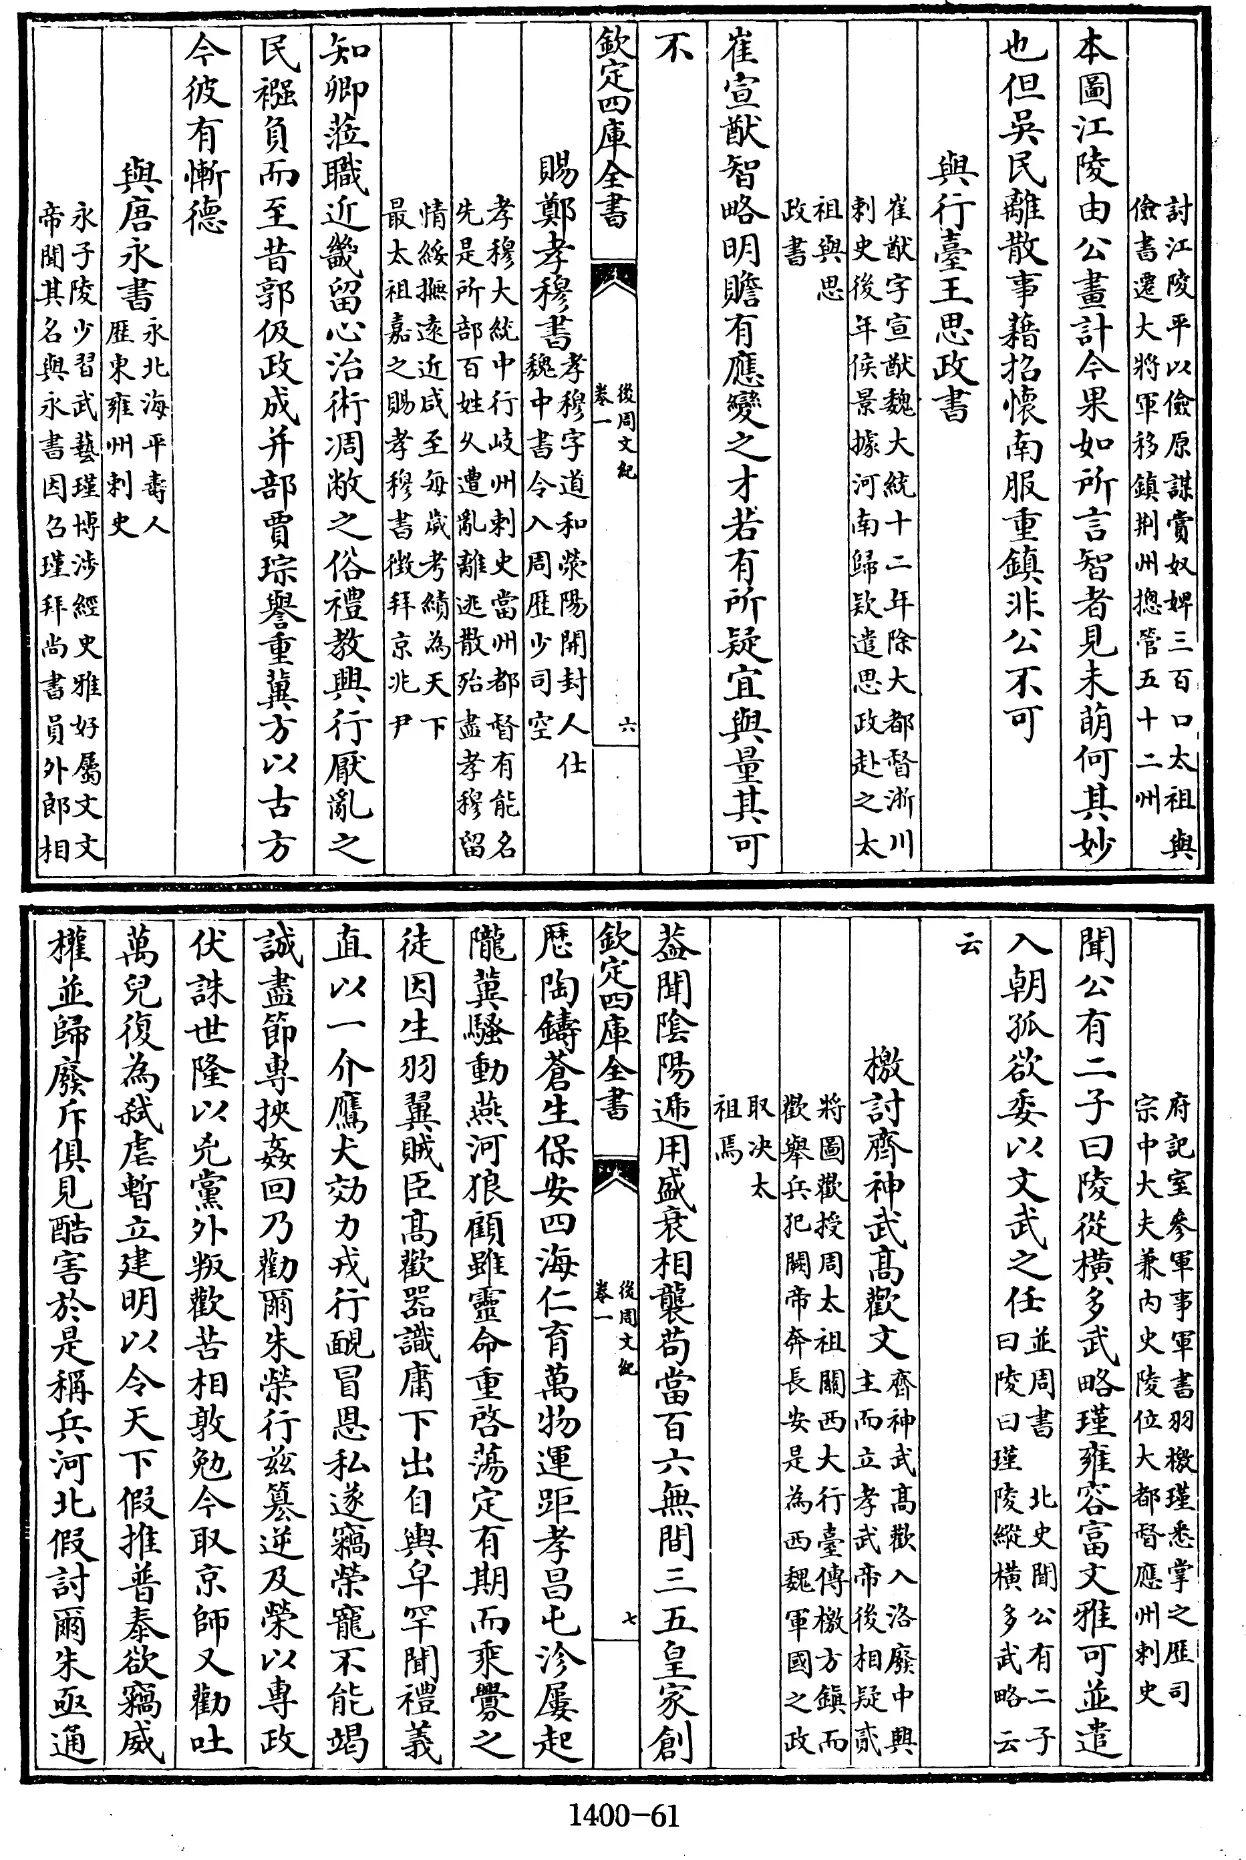 討江陵平以儉原謀賞奴婢三百口太祖與
儉書遷大將軍移鎮荆州摠管五十二州
本圖江陵由公畫計今果如所言智者見未萌何其妙
也但吳民離散事藉招懷南服重鎮非公不可
與行臺王思政書
崔猷字宣猷魏大統十二年除大都督淅川
刺史後年侯景據河南歸欵遣思政赴之太
祖與思
政書
崔宣猷智略明贍有應變之才若有所疑宜與量其可
不
欽定四庫全書
後周文紀
卷一
六
賜鄭孝穆書
孝穆字道和滎陽開封人仕
魏中書令入周歷少司空
孝穆大統中行岐州刺史當州都督有能名
先是所部百姓乆遭亂離逃散殆盡孝穆留
情綏撫遠近咸至每歳考績為天下
最太祖嘉之賜孝穆書徴拜京兆尹
知卿蒞職近畿留心治術凋敝之俗禮教興行厭亂之
民襁負而至昔郭伋政成并部賈琮譽重冀方以古方
今彼有慚德
與唐永書
永北海平壽人
歷東雍州刺史
永子陵少習武藝瑾博涉經史雅好屬文文
帝聞其名與永書因名瑾拜尚書員外郎相
府記室參軍事軍書羽檄瑾悉掌之歷司
宗中大夫兼内史陵位大都督應州刺史
聞公有二子曰陵從橫多武略瑾雍容富文雅可並遣
入朝孤欲委以文武之任
並周書 北史聞公有二子
曰陵曰瑾陵縱橫多武略云
云
檄討齊神武髙歡文
齊神武髙歡入洛廢中興
主而立孝武帝後相疑貳
將圖歡授周太祖關西大行臺傳檄方鎮而
歡舉兵犯闕帝奔長安是為西魏軍國之政
取决太
祖焉
葢聞陰陽遞用盛衰相襲苟當百六無間三五皇家創
歴陶鑄蒼生保安四海仁育萬物運距孝昌屯沴屢起
隴冀騷動燕河狼顧雖靈命重啓蕩定有期而乘釁之
徒因生羽翼賊臣髙歡器識庸下出自輿皁罕聞禮義
直以一介鷹犬効力戎行靦冒恩私遂竊榮寵不能竭
誠盡節專挾姦回乃勸爾朱榮行兹簒逆及榮以專政
伏誅世隆以兇黨外叛歡苦相敦勉令取京師又勸吐
萬兒復為弑虐暫立建明以令天下假推普泰欲竊威
權並歸廢斥俱見酷害於是稱兵河北假討爾朱亟通
欽定四庫全書
後周文紀
卷一
七
1400-61